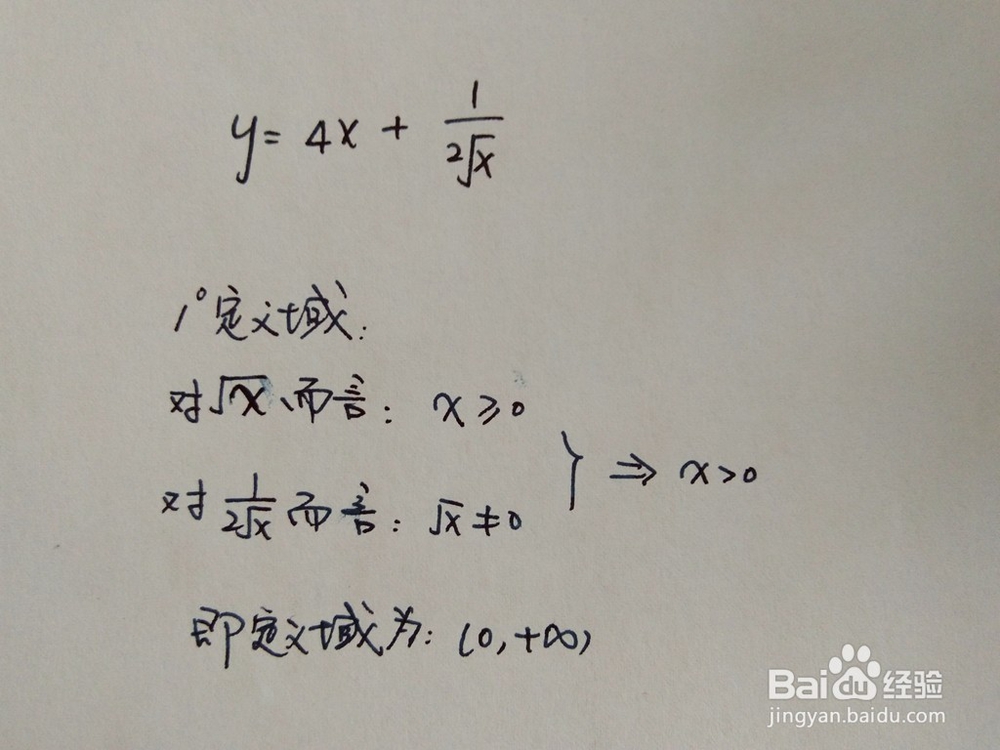 y = 4x + 1/(2√x)
1° 定义域:
对√x 而言: x ≥ 0
对 1/(2√x) 而言: √x ≠ 0
} ⇒ x > 0
即定义域为: (0, +∞)
Baidu 经验
jingyan.baidu.com